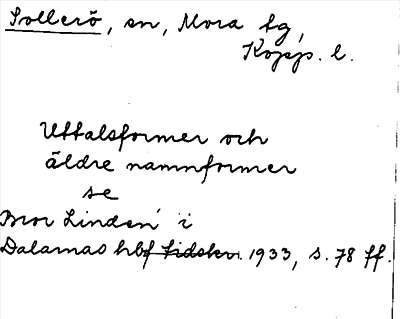 Sollerö, sn, Mora tg,
Kopp. l.
Uttalsformer och
äldre namnformer
se
Bror Lindén i
Dalarnas hbf tidskr. 1933, s. 78 ff.